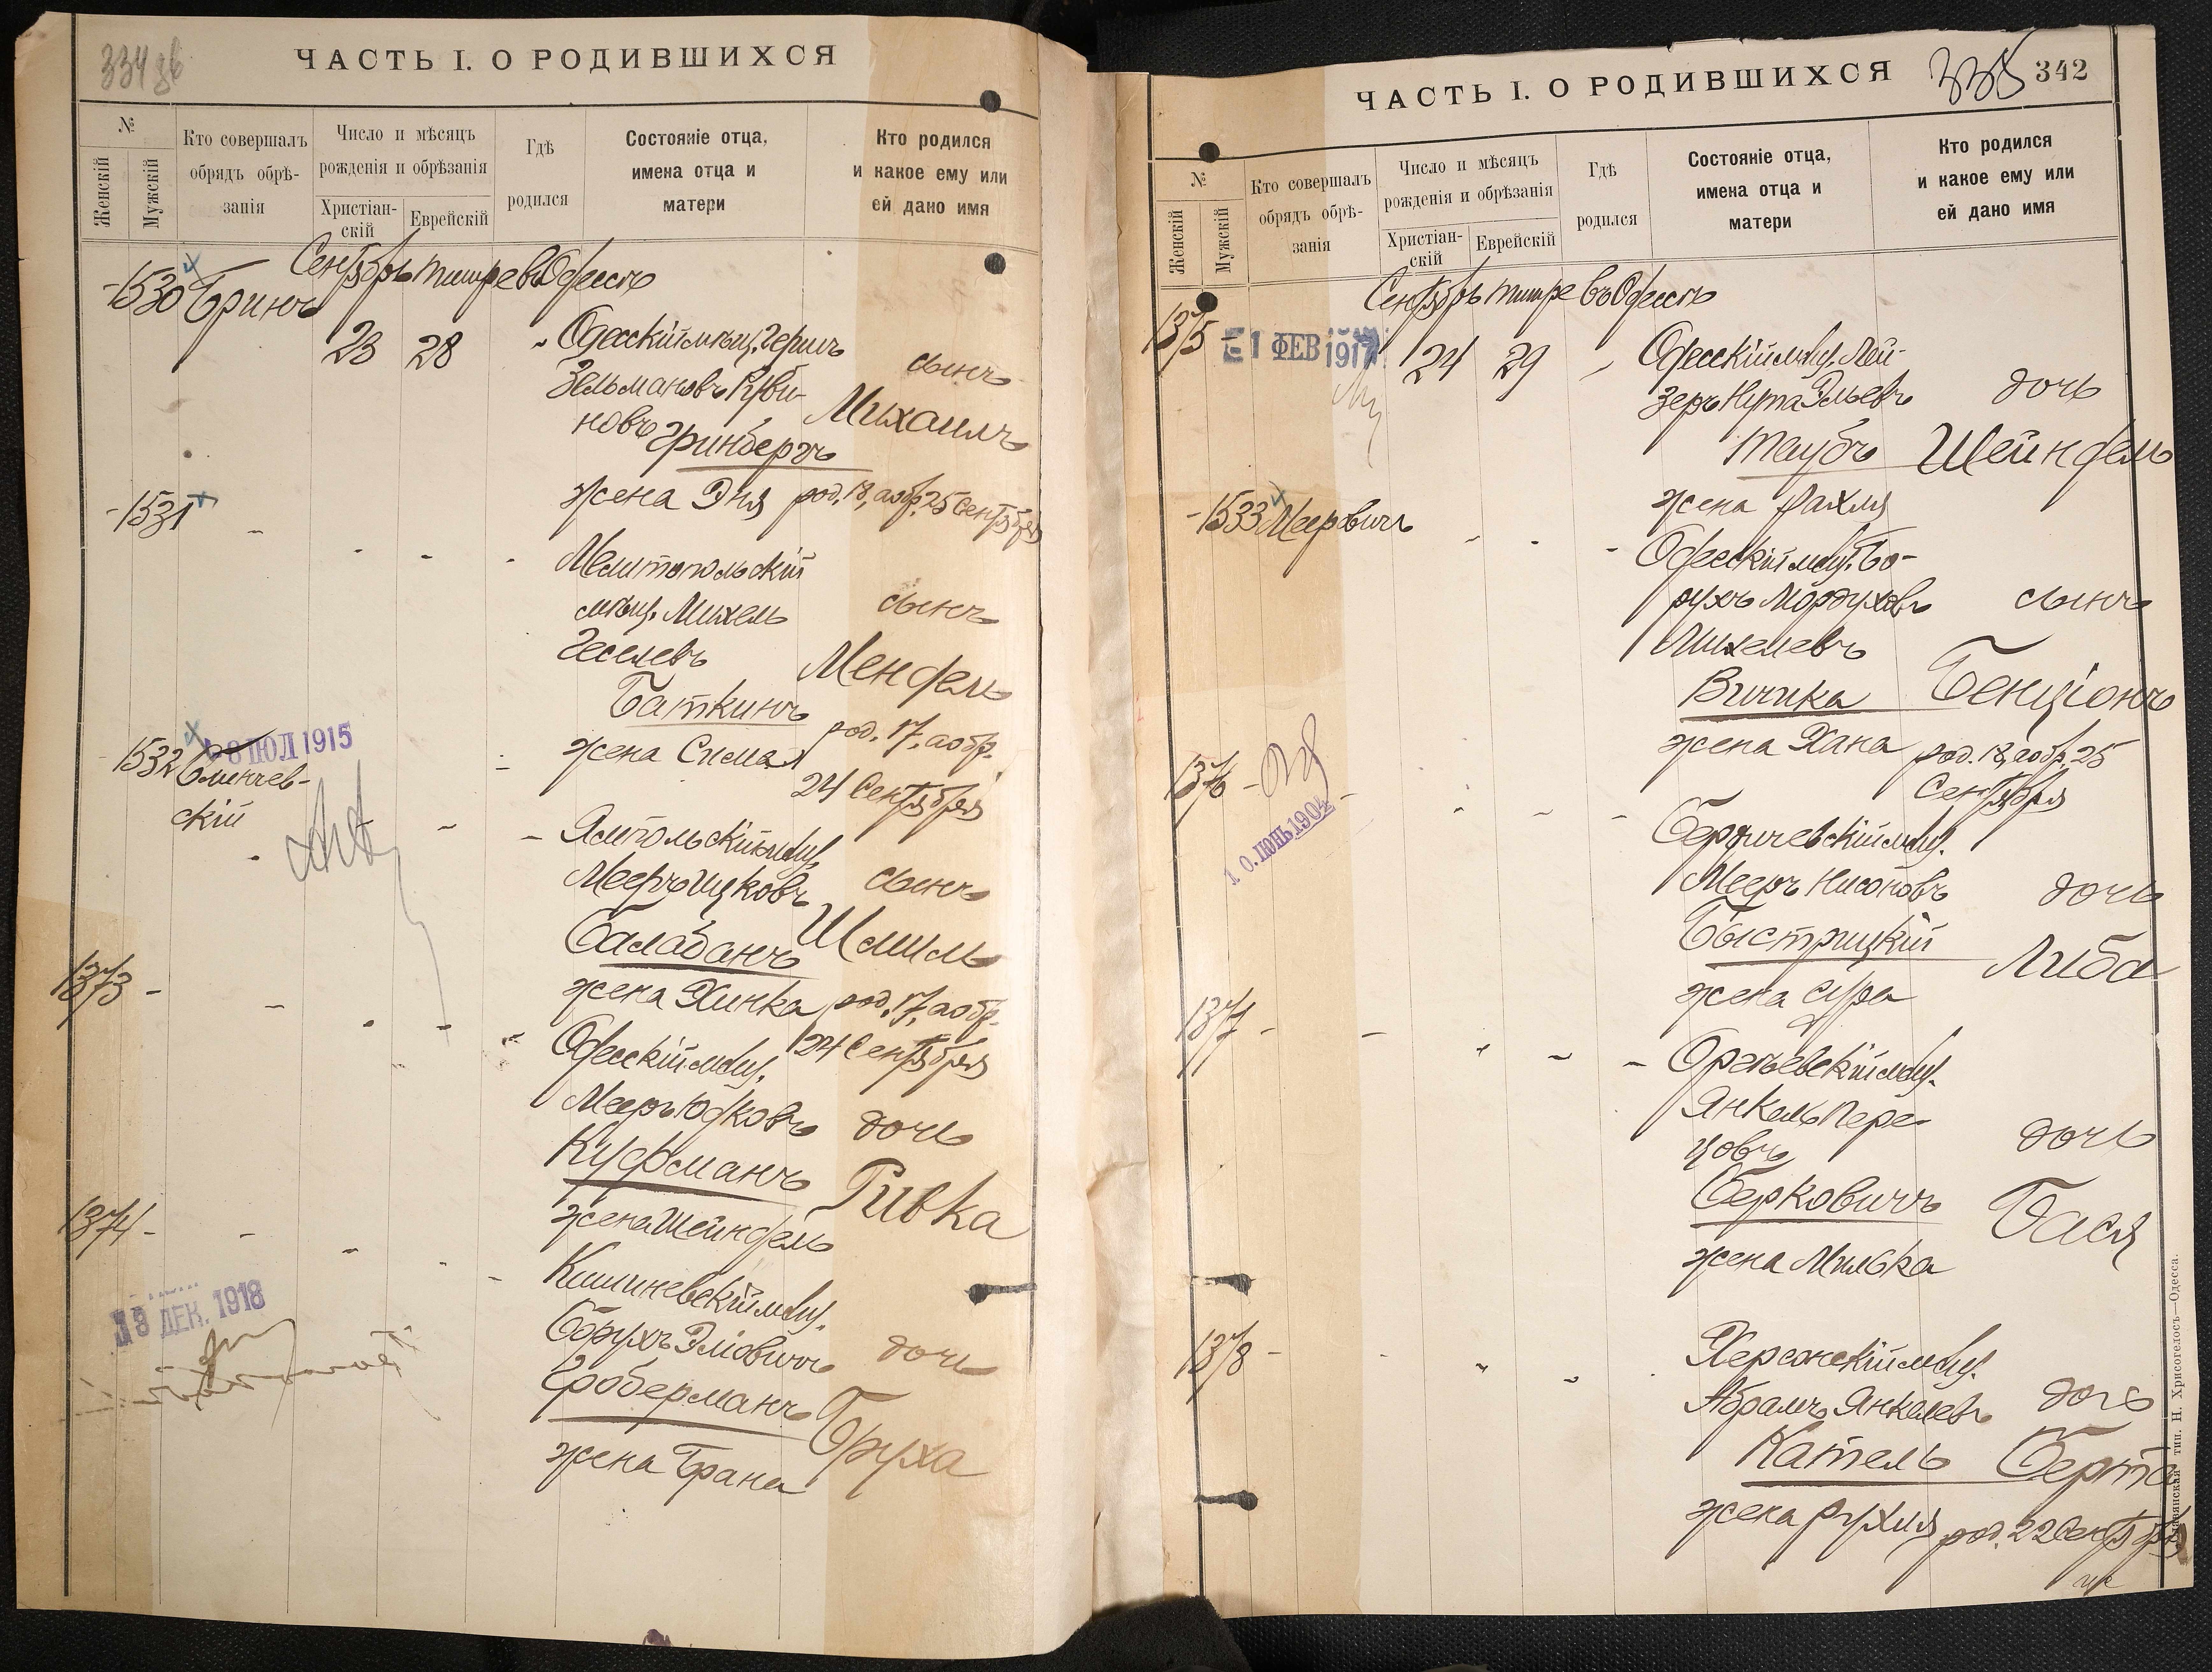 334 об
ЧАСТЬ I. О РОДИВШИХСЯ
№
Женскій
Мужскій
Кто совершалъ
обрядъ обрѣ-
занія
Число и мѣсяцъ
рожденія и обрѣзанія
Христіан-
скій
Еврейскій
Гдѣ
родился
Состояніе отца,
имена отца и
матери
Кто родился
и какое ему или
ей дано имя
Сентябрь тишре въ Одессѣ
1530 Бринъ
23 28
Одесскій мѣщ. Герш
Зельмановъ Руви-
новъ Гринбергъ
жена Эня
сынъ
Михаилъ
род. 18, а обр. 25 Сентября
1531
Мелитопольскій
мѣщ. Михель
Геселевъ
Баткинъ
жена Сима
сынъ
Мендель
род. 17, а обр.
24 Сентября
8 ІЮЛ 1915
1532
скій
Ямпольскій мѣщ.
Мееръ Ицковъ
Балабанъ
жена Хинка
сынъ
Шмиль
род. 17, а обр.
24 Сентября
1373
Одесскій мѣщ.
Мееръ Юдковъ
Куфманъ
жена Шейндель
дочь
Ривка
1374
Кишиневскій мѣщ.
Борухъ Эліовичъ
Гроберманъ
жена Брана
дочь
Бруха
18 ДЕК. 1918
ЧАСТЬ I. О РОДИВШИХСЯ
335
342
№
Женскій
Мужскій
Кто совершалъ
обрядъ обрѣ-
занія
Число и мѣсяцъ
рожденія и обрѣзанія
Христіан-
скій
Еврейскій
Гдѣ
родился
Состояніе отца,
имена отца и
матери
Кто родился
и какое ему или
ей дано имя
Сентябрь тишре въ Одессѣ
1375
1 ФЕВ 1917
24 29
Одесскій мѣщ. Лей-
зеръ Нута Эльевъ
Таубъ
жена Рахля
дочь
Шейндель
1533 Мееровичъ
Одесскій мѣщ. Бо-
рухъ Мордуховъ
Михелевъ
Вичика
жена Хана
сынъ
Бенціонъ
род. 18, а обр. 25
Сентября
1376
10 ІЮНЬ 1904
Бердичевскій мѣщ.
Мееръ Нисоновъ
Быстрицкій
жена Сура
дочь
Либа
1377
Оргѣевскій мѣщ.
Янкель Пере-
цовъ
Берковичъ
жена Милька
дочь
Бася
1378
Херсонскій мѣщ.
Абрамъ Янкелевъ
Катель
жена Рухля
дочь
Берта
род. 22 Сентября
Славянская тип. Н. Хрисогелосъ—Одесса.